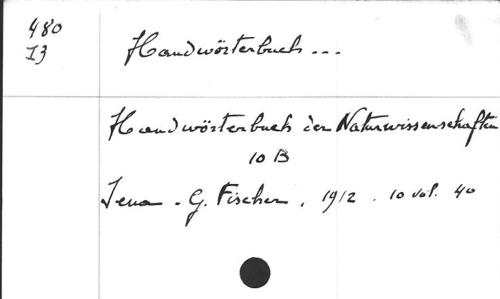 480
I3
Handwörterbuch ...
Handwörterbuch der Naturwissenschaften
10 B
Jena. G. Fischer, 1912. 10 vol. 40